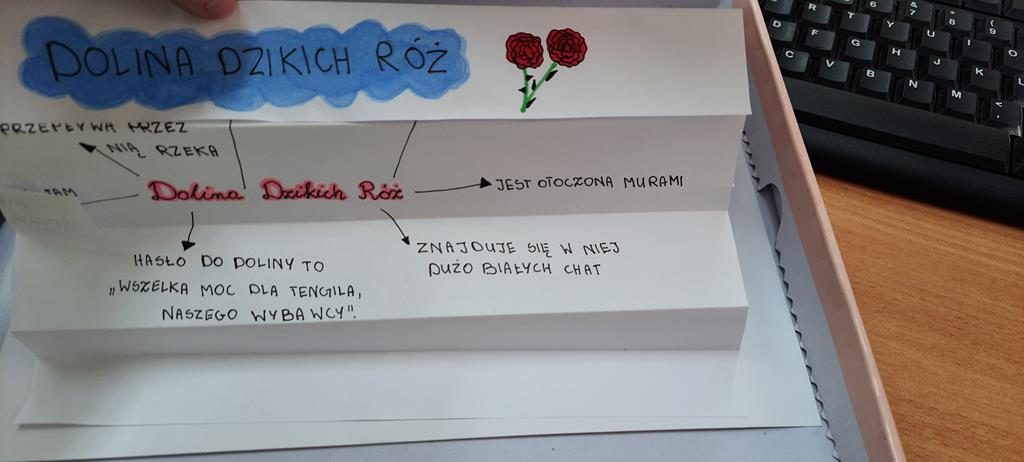 DOLINA DZIKICH RÓŻ
PRZEPŁYWA PRZEZ
NIĄ RZEKA
TAM
Dolina Dzikich Róż
JEST OTOCZONA MURAMI
ZNAJDUJE SIĘ W NIEJ
DUŻO BIAŁYCH CHAT
HASŁO DO DOLINY TO
„WSZELKA MOC DLA TENGILA,
NASZEGO WYBAWCY".